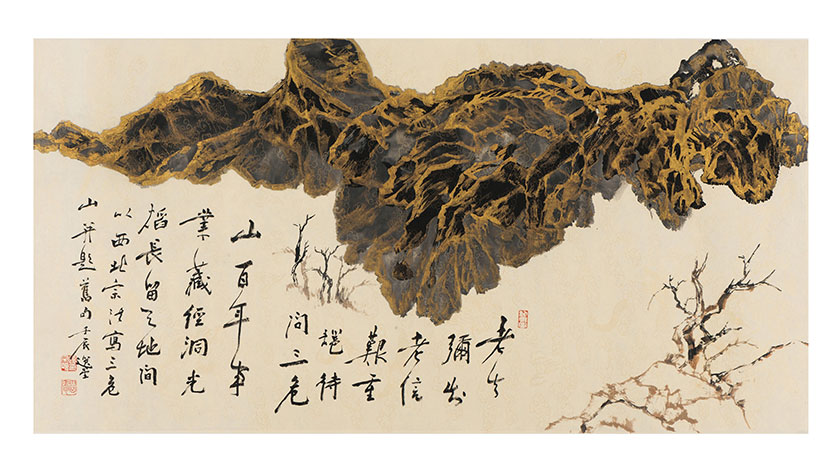 老去
彌知
老信
艱重
待
問三危
山百年事
業藏經洞光
焰長留天地間
以西北宗法寫三危
山并題舊句壬辰選堂